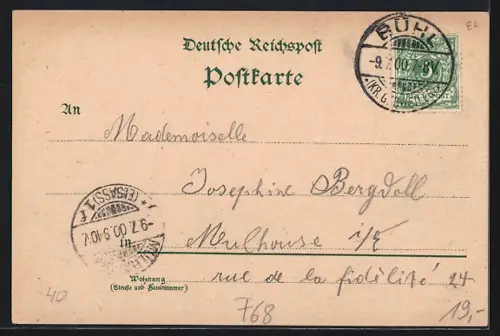 EL
BÜHL
-9.7.00.7-8V.
Deutsche Reichspost
Postkarte
An
Mademoiselle
Josephine Bergdoll
(ELSASS) 1
-9.7.00.9-10V.
in
Mulhouse i/E
Wohnung
(Straße und Hausnummer)
rue de la fidélité 24
40
768
19,-